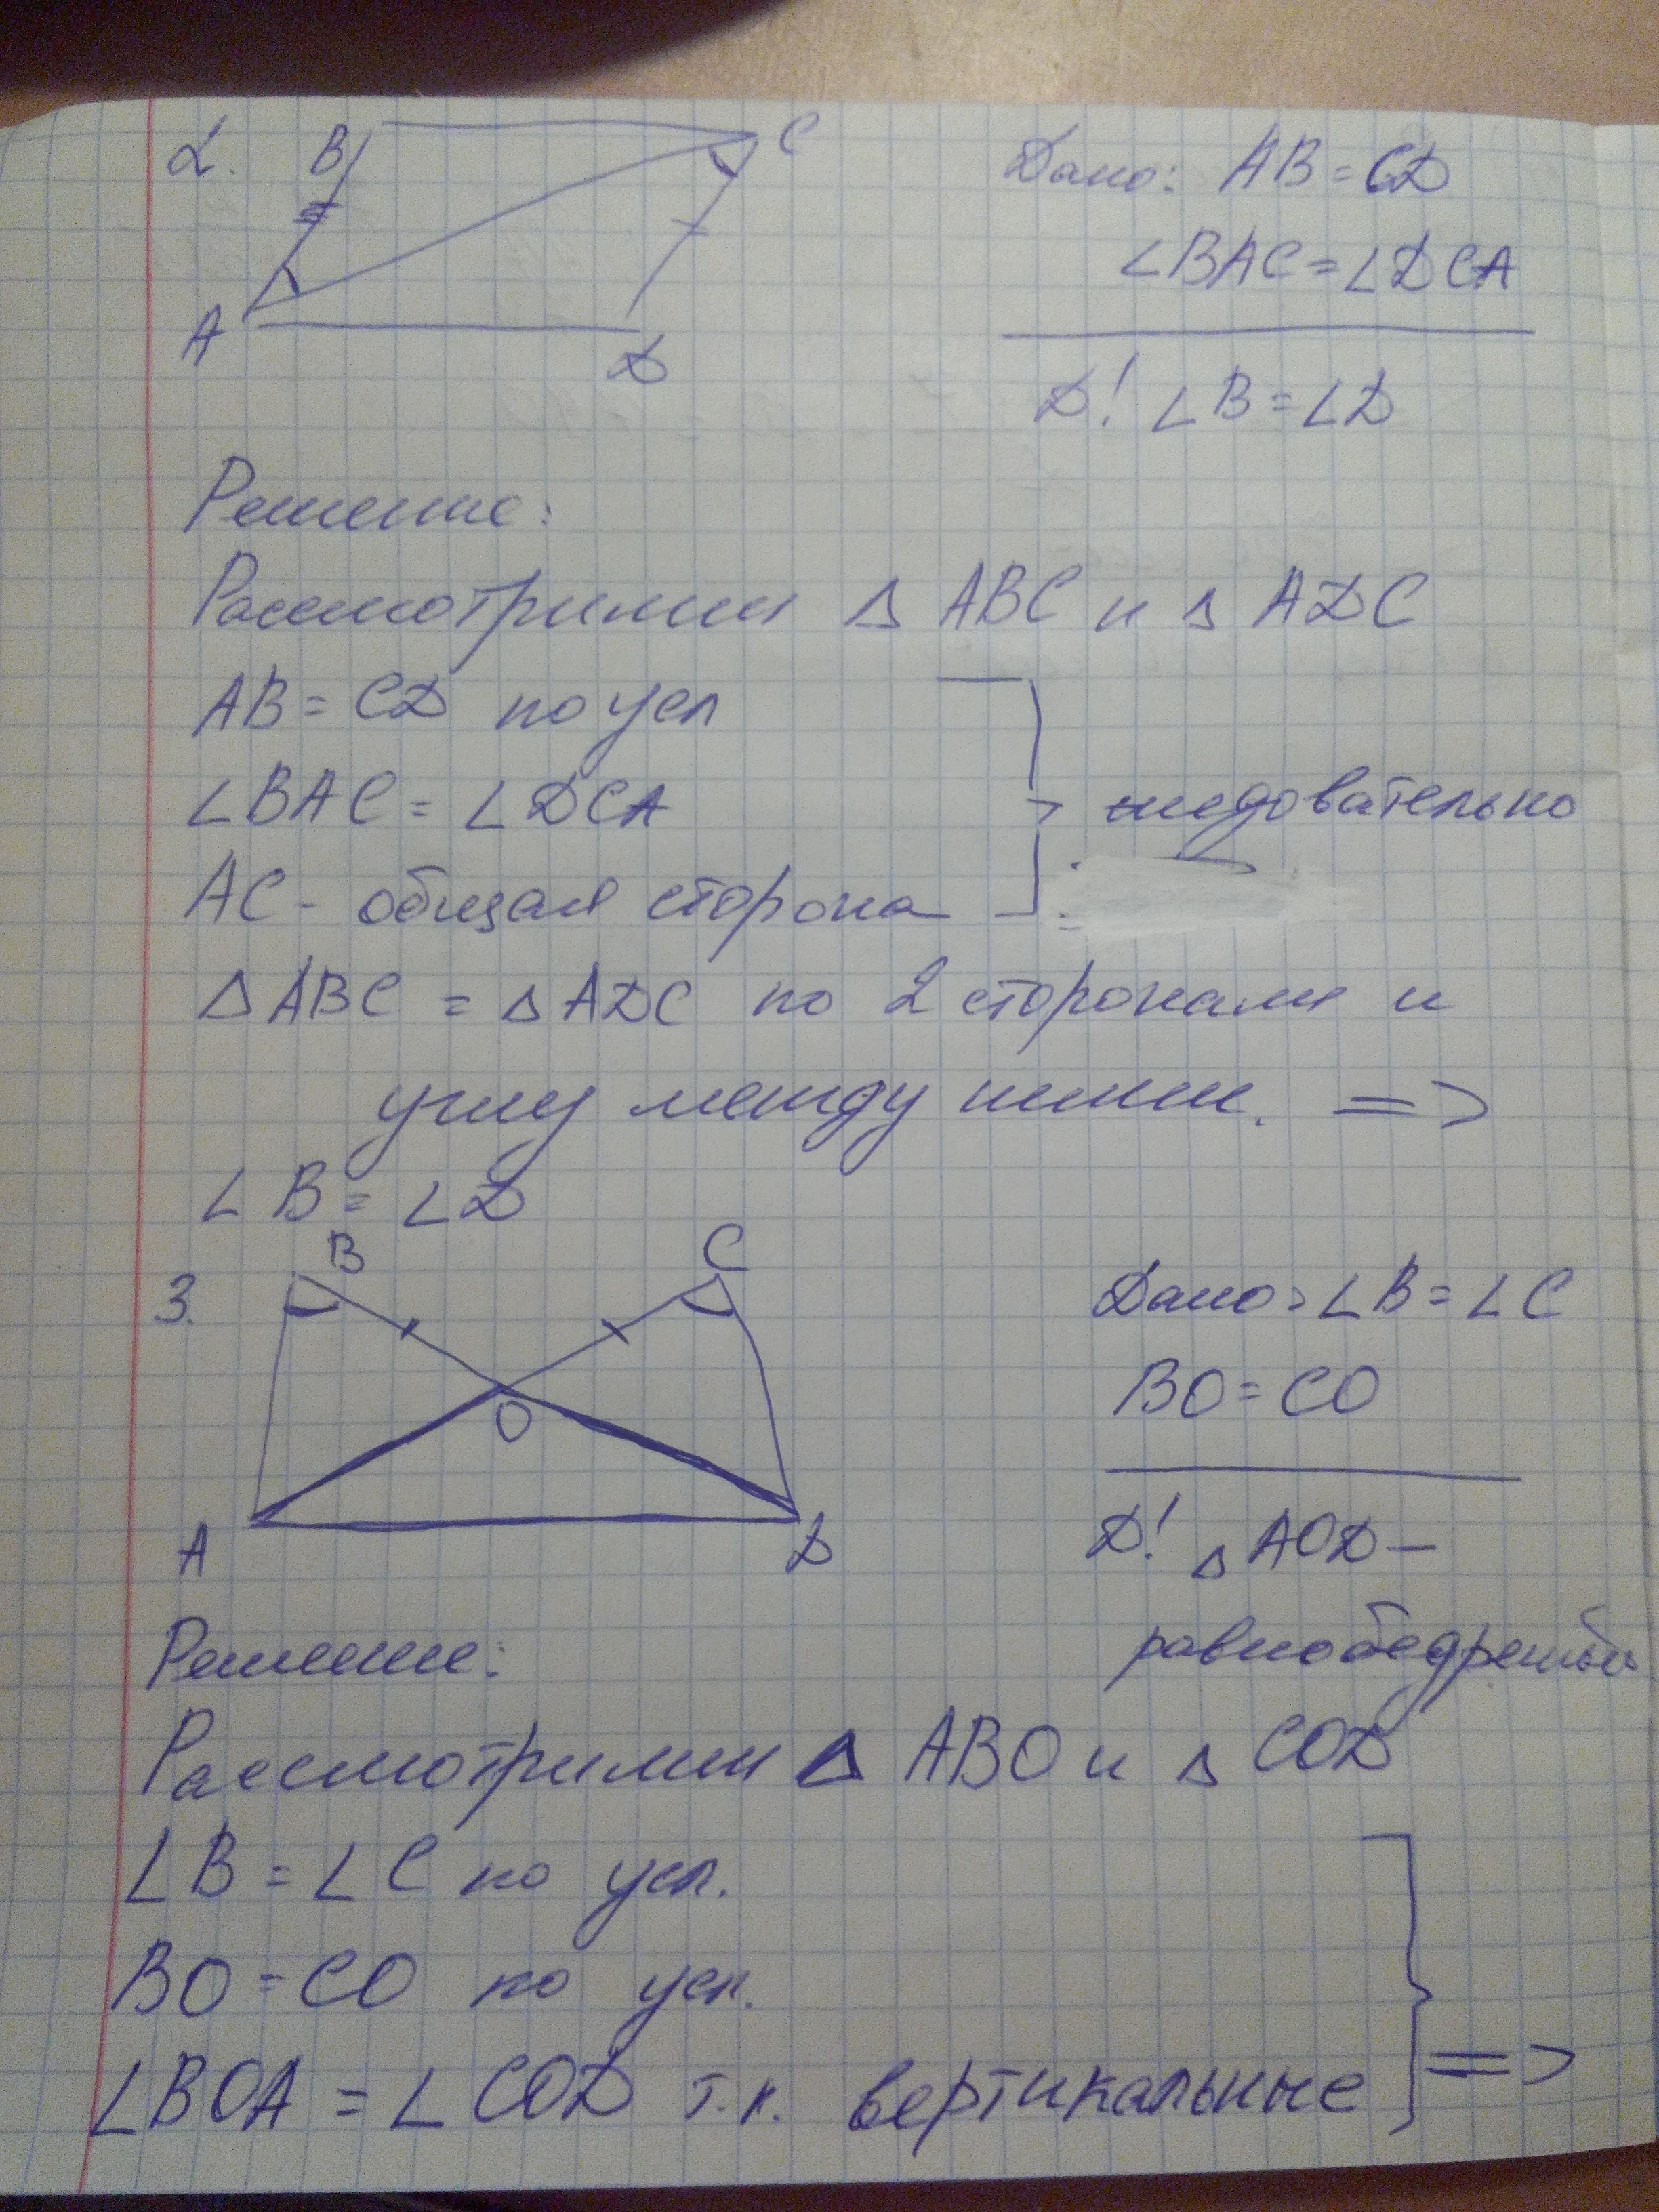 2. B C Дано: AB = CD
∠BAC = ∠DCA
A D
Д! ∠B = ∠D
Решение:
Рассмотрим △ ABC и △ ADC
AB = CD по усл
∠BAC = ∠DCA
следовательно
AC - общая сторона
△ ABC = △ ADC по 2 сторонам и
углу между ними. =>
∠B = ∠D
B C
3. Дано: ∠B = ∠C
BO = CO
O
A D
Д! △ AOD —
равнобедренный
Решение:
Рассмотрим △ ABO и △ COD
∠B = ∠C по усл.
BO = CO по усл.
∠BOA = ∠COD т.к. вертикальные =>